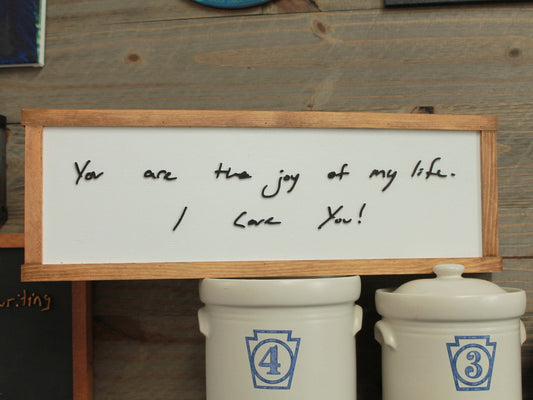 You are the joy of my life.
I Love You!
writing
4
3